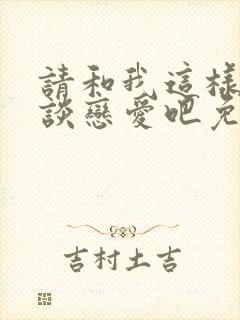 請和我這樣
談戀愛吧免
吉村土吉